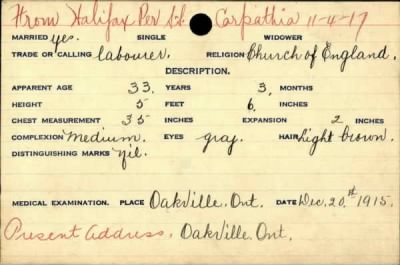 From Halifax Per S.S. Carpathia 11-4-17
MARRIED yes. SINGLE WIDOWER
TRADE OR CALLING labourer. RELIGION Church of England.
DESCRIPTION.
APPARENT AGE 33 YEARS 3 MONTHS
HEIGHT 5 FEET 6 INCHES
CHEST MEASUREMENT 35 INCHES EXPANSION 2 INCHES
COMPLEXION medium. EYES gray. HAIR Light brown.
DISTINGUISHING MARKS Nil.
MEDICAL EXAMINATION. PLACE Oakville, Ont. DATE Dec. 20.st 1915.
Present Address, Oakville, Ont.